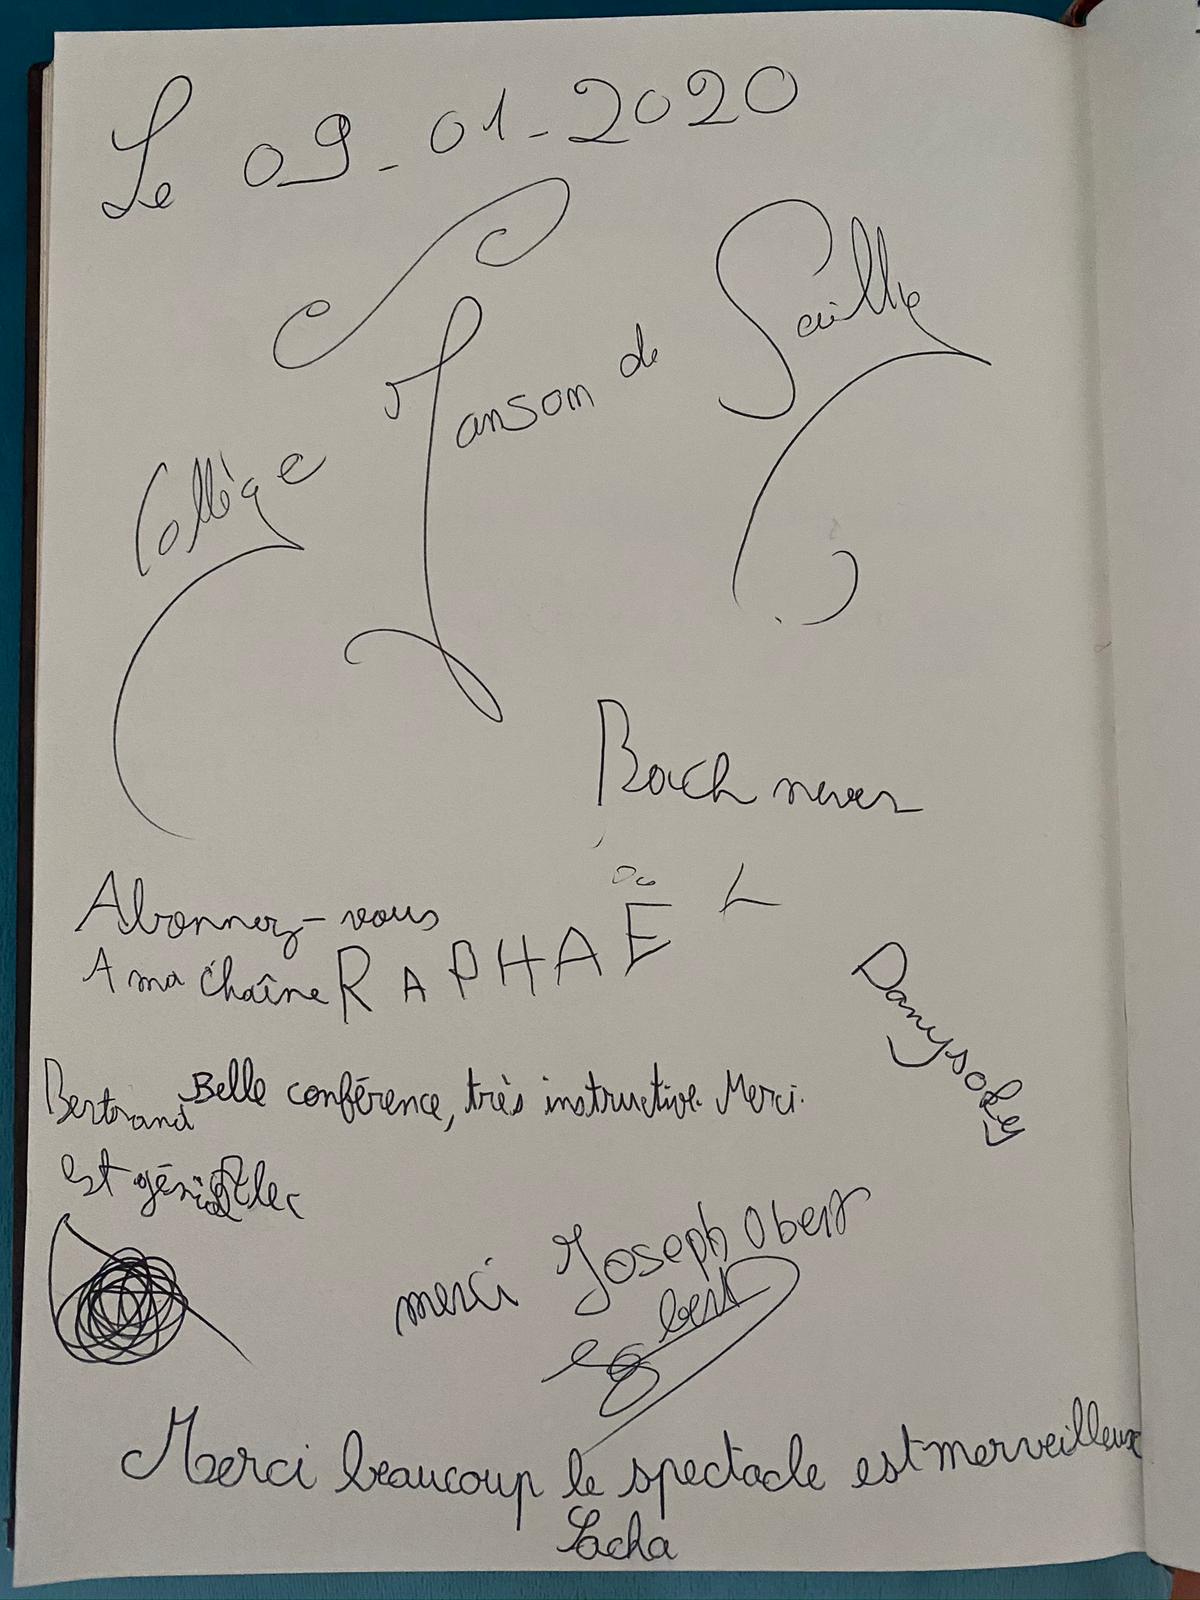 Le 09-01-2020
Collège Janson de Sailly
Bach never
Abonnez-vous
A ma chaîne RAPHAËL
Danysoky
Belle conférence, très instructive. Merci.
Bertrand
est génial
merci Joseph Obert
Merci beaucoup le spectacle est merveilleux
Sacha